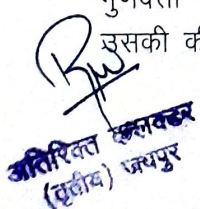 गुणवत्ता
उसकी की
अतिरिक्त कलक्टर
(तृतीय) जयपुर